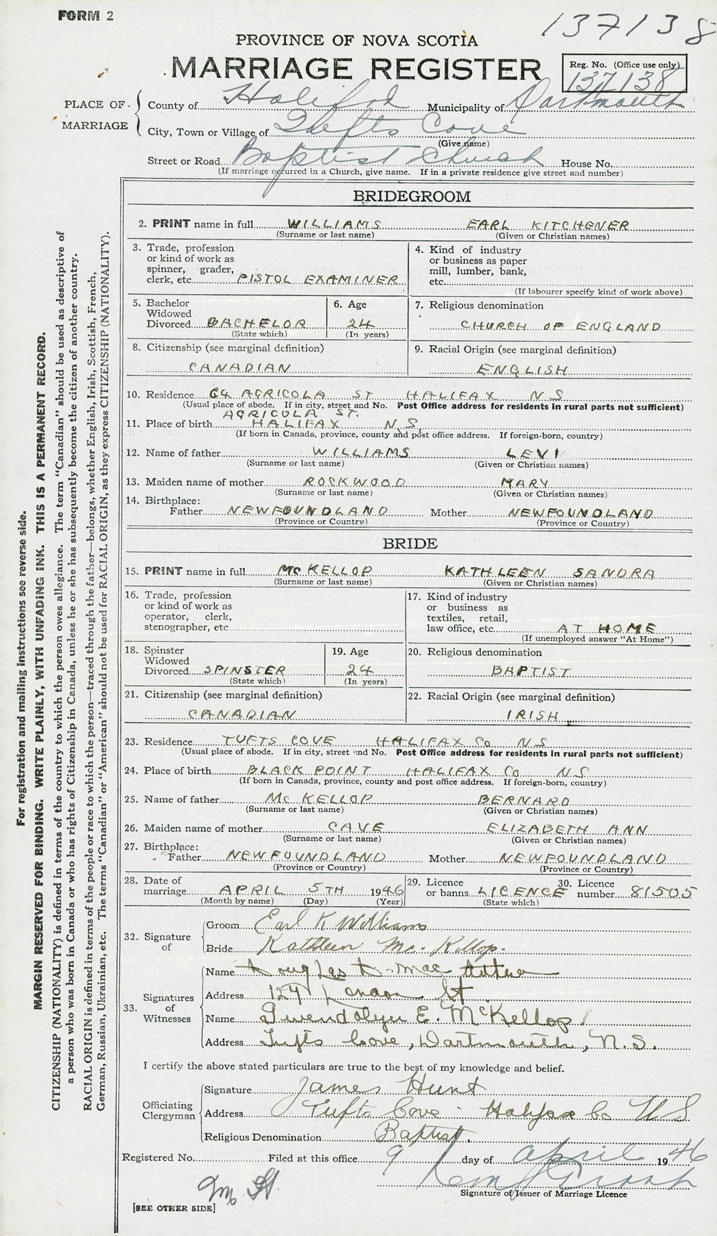 FORM 2
137138
PROVINCE OF NOVA SCOTIA
MARRIAGE REGISTER
Reg. No. (Office use only)
137138
PLACE OF MARRIAGE
County of Halifax Municipality of Dartmouth
City, Town or Village of Tufts Cove
(Give name)
Street or Road Baptist Church House No.
(If marriage occurred in a Church, give name. If in a private residence give street and number)
BRIDEGROOM
2. PRINT name in full WILLIAMS EARL KITCHENER
(Surname or last name) (Given or Christian names)
3. Trade, profession or kind of work as spinner, grader, clerk, etc. PISTOL EXAMINER
4. Kind of industry or business as paper mill, lumber, bank, etc.
(If labourer specify kind of work above)
5. Bachelor Widowed Divorced BACHELOR
(State which)
6. Age 24
(In years)
7. Religious denomination
CHURCH OF ENGLAND
8. Citizenship (see marginal definition)
CANADIAN
9. Racial Origin (see marginal definition)
ENGLISH
10. Residence 64 AGRICOLA ST HALIFAX N S
(Usual place of abode. If in city, street and No. Post Office address for residents in rural parts not sufficient)
AGRICOLA ST.
11. Place of birth HALIFAX N S
(If born in Canada, province, county and post office address. If foreign-born, country)
12. Name of father WILLIAMS LEVI
(Surname or last name) (Given or Christian names)
13. Maiden name of mother ROCKWOOD MARY
(Surname or last name) (Given or Christian names)
14. Birthplace:
Father NEWFOUNDLAND Mother NEWFOUNDLAND
(Province or Country) (Province or Country)
BRIDE
15. PRINT name in full MCKELLOP KATHLEEN SANDRA
(Surname or last name) (Given or Christian names)
16. Trade, profession or kind of work as operator, clerk, stenographer, etc.
17. Kind of industry or business as textiles, retail, law office, etc. AT HOME
(If unemployed answer "At Home")
18. Spinster Widowed Divorced SPINSTER
(State which)
19. Age 24
(In years)
20. Religious denomination
BAPTIST
21. Citizenship (see marginal definition)
CANADIAN
22. Racial Origin (see marginal definition)
IRISH
23. Residence TUFTS COVE HALIFAX Co N S
(Usual place of abode. If in city, street and No. Post Office address for residents in rural parts not sufficient)
24. Place of birth BLACK POINT HALIFAX Co N S
(If born in Canada, province, county and post office address. If foreign-born, country)
25. Name of father Mc KELLOP BERNARD
(Surname or last name) (Given or Christian names)
26. Maiden name of mother CAVE ELIZABETH ANN
(Surname or last name) (Given or Christian names)
27. Birthplace:
Father NEWFOUNDLAND Mother NEWFOUNDLAND
(Province or Country) (Province or Country)
28. Date of marriage APRIL 5TH 1946
(Month by name) (Day) (Year)
29. Licence or banns LICENCE
(State which)
30. Licence number 81505
32. Signature of
Groom Earl K Williams
Bride Kathleen Mc. Kellop.
33. Signatures of Witnesses
Name Douglas
Address 129 St.
Name Gwendolyn E. McKellop
Address Tufts Cove, Dartmouth, N.S.
I certify the above stated particulars are true to the best of my knowledge and belief.
Officiating Clergyman
Signature James Hunt
Address Tufts Cove Halifax Co N S
Religious Denomination Baptist
Registered No. Filed at this office 9 day of April 1946
Signature of Issuer of Marriage Licence
[SEE OTHER SIDE]
For registration and mailing instructions see reverse side.
MARGIN RESERVED FOR BINDING. WRITE PLAINLY, WITH UNFADING INK. THIS IS A PERMANENT RECORD.
CITIZENSHIP (NATIONALITY) is defined in terms of the country to which the person owes allegiance. The term "Canadian" should be used as descriptive of
a person who was born in Canada or who has rights of Citizenship in Canada, unless he or she has subsequently become the citizen of another country.
RACIAL ORIGIN is defined in terms of the people or race to which the person—traced through the father—belongs, whether English, Irish, Scottish, French,
German, Russian, Ukrainian, etc. The terms "Canadian" or "American" should not be used for RACIAL ORIGIN, as they express CITIZENSHIP (NATIONALITY).